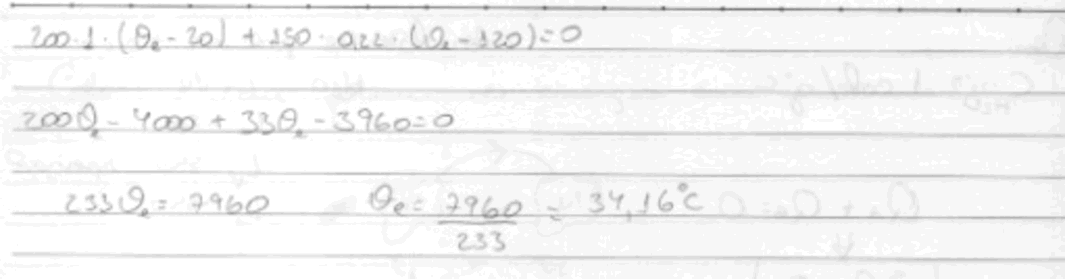 200·1·(θe - 20) + 150·0,22·(θe - 120) = 0
200θe - 4000 + 33θe - 3960 = 0
233θe = 7960 θe = 7960/233 = 34,16°C